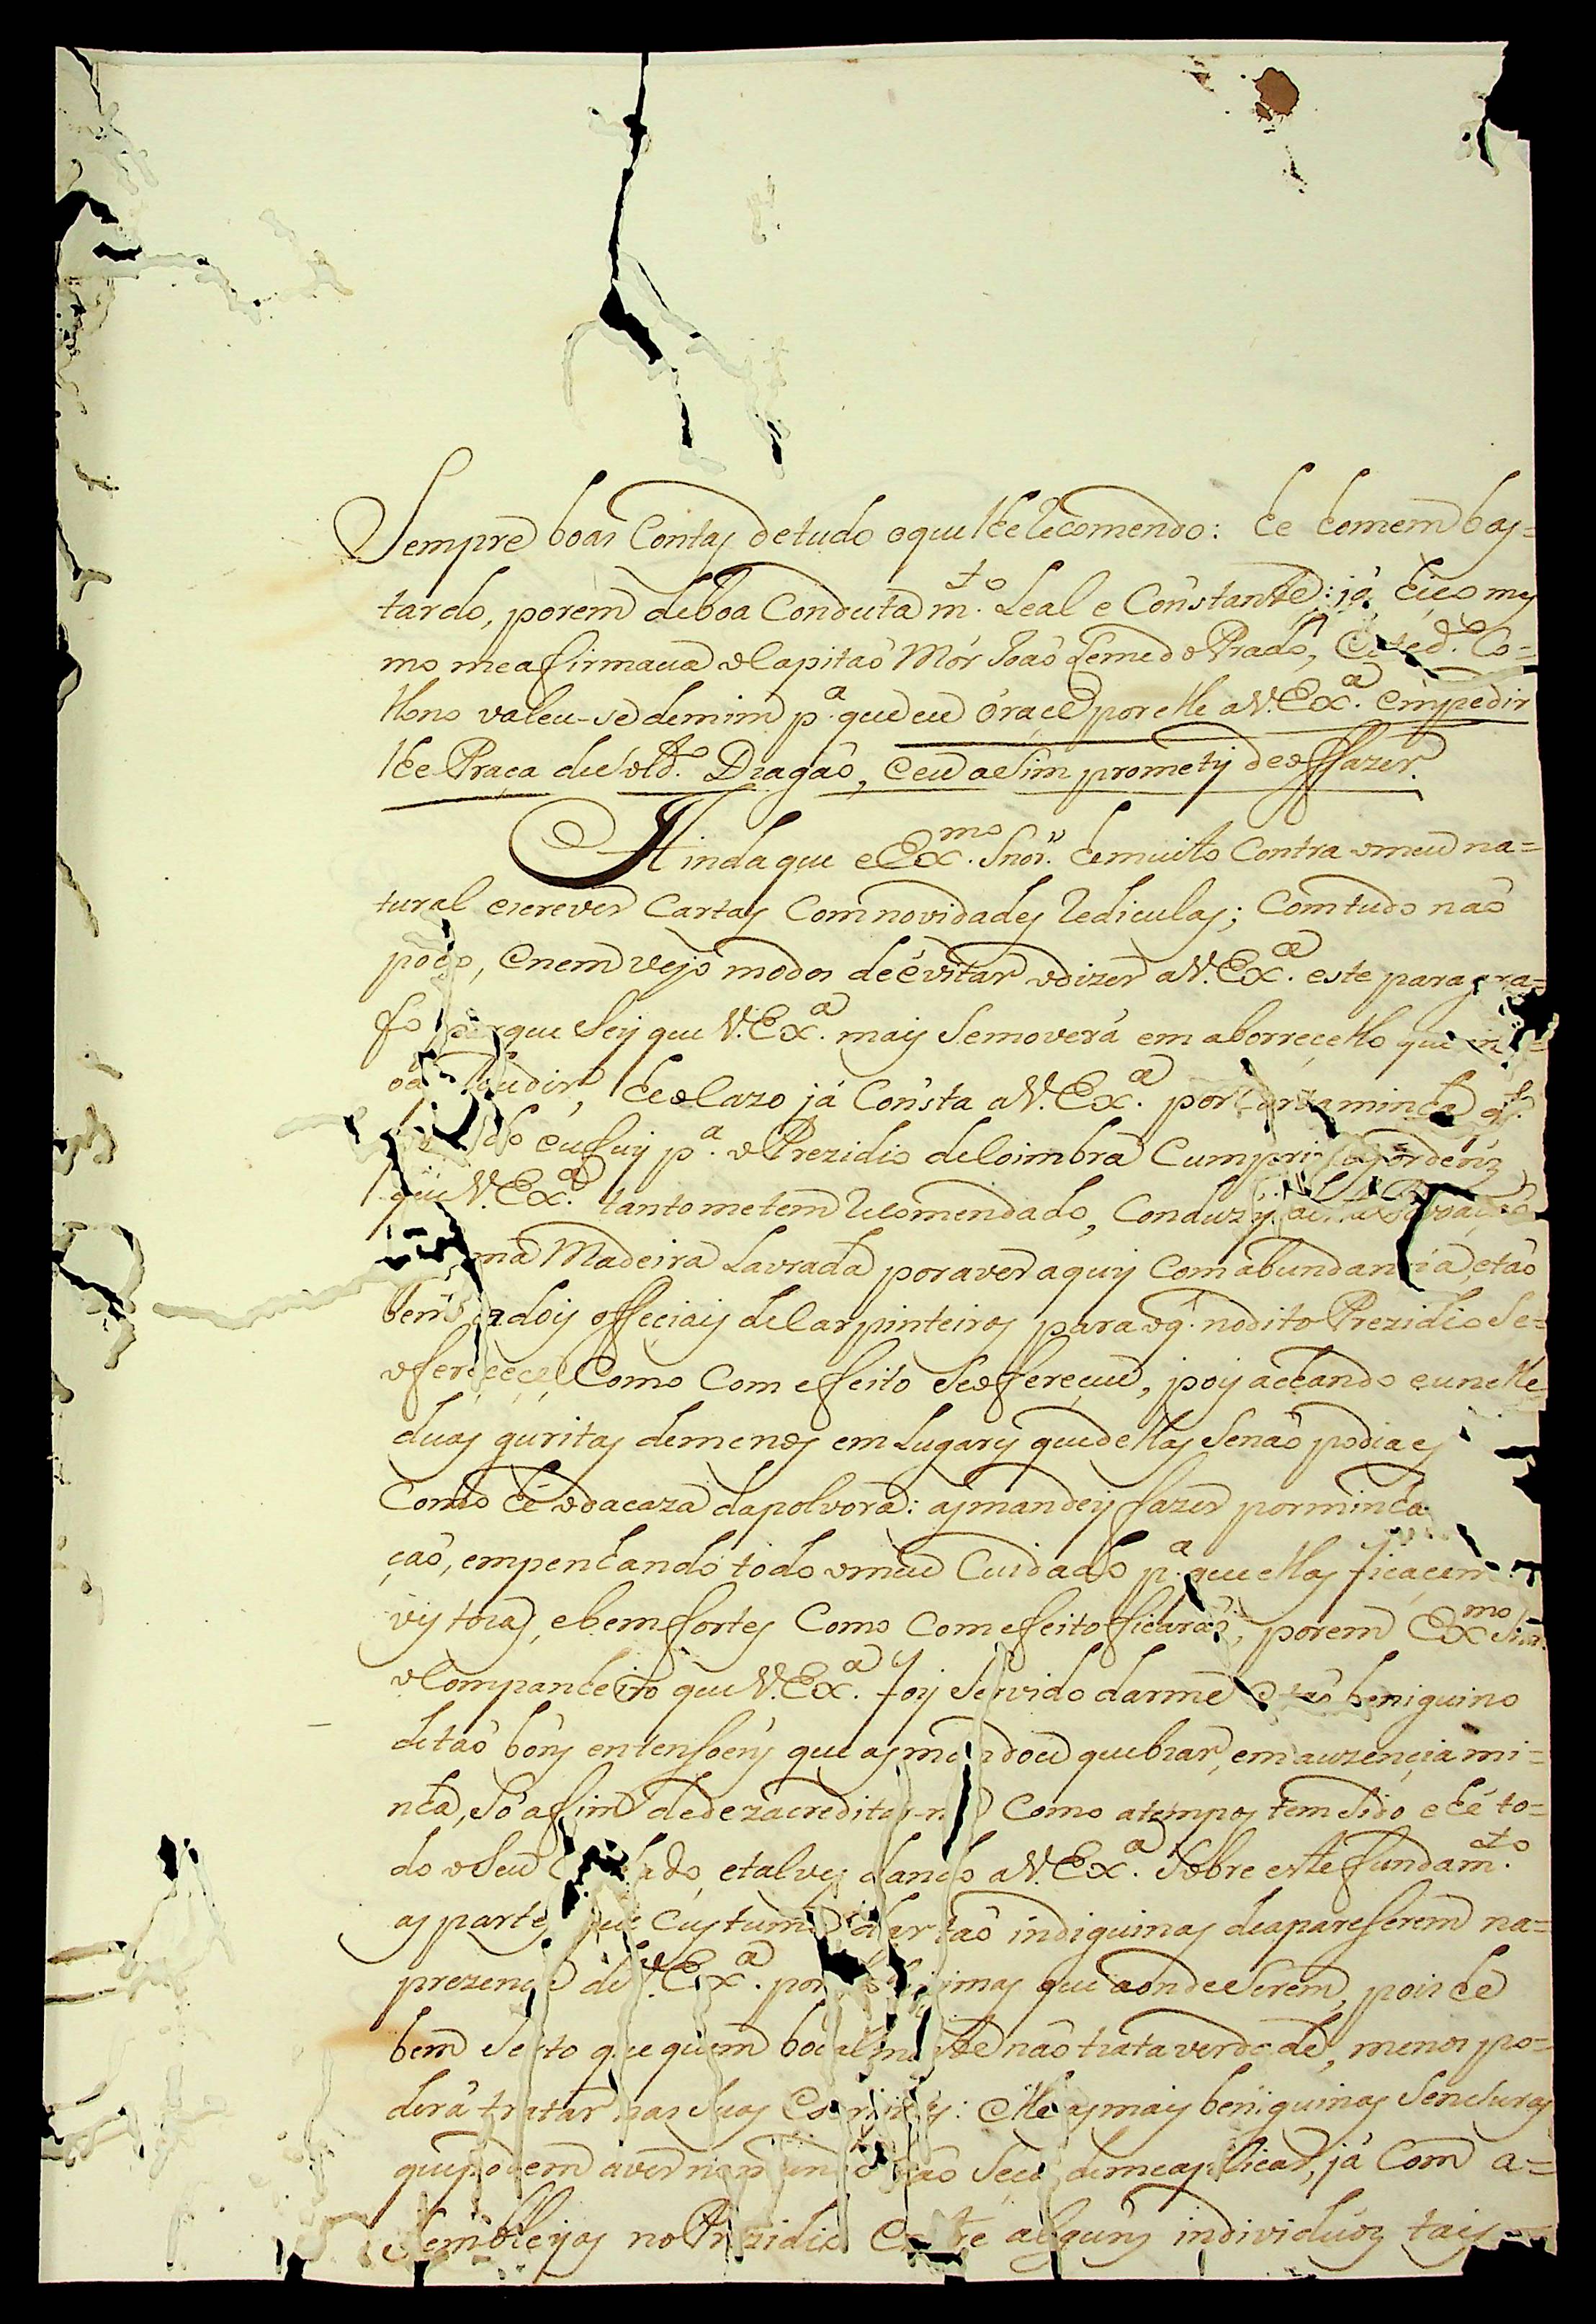 Sempre boas Contas detudo oque lhe Recomendo: he homem bas=
tardo, porem deboa Conduta m.to Leal e Constante: já hiço mes
mo me afirmava o Capitaõ Mór Joaõ Leme do Prado, Co=
lhono valeu-se demim p.a que eu óraçe por elle a V.Ex.a empedir
lhe Praça de sold.o Dragaõ, e eu asim promety de o ffazer.
Ainda que e Ex.mo Snor.' he muito Contra o meu na=
tural escrever Cartas Com novidades Rediculas; Comtudo naõ
poço, e nem vejo modos de évitar o dizer a V.Ex.a este paragra=
fo porque Sey que V.Ex.a mais Semoverá em aborreçello que
he o Cazo já Consta a V.Ex.a por Carta minha q.
do eu fuy p.a o Prezidio de Coimbra Cumprir as ordens
que V.Ex.a tanto me tem Recomendado, Conduzy
ma Madeira Lavrada por aver aquy Com abundancia, e taõ
bem dois offeçiais de Carpinteiros para o q. no dito Prezidio Se=
ofereçeçe, Como Com effeito Se ofereçeu, pois achando eu nelle
duas guritas de menos em Lugares que dellas Senaõ podia es
Como hé o da caza da polvora: as mandey ffazer por minha
çaõ, empenhando todo o meu Cuidado p.a que ellas ficaçem
vistoza, e bem ffortes Como Com effeito fficaraõ, porem Ex.mo Snr.
o Companheiro que V.Ex.a foy Servido darme he taõ beniguino
de taõ bons entensoens que as mandou quebrar, em auzençia mi=
nha, Só afim de dezacreditar-me Como atempos tem Sido e hé to=
do o Seu Cuidado, e talves dando a V.Ex.a Sobre este fundam.to
as partes que Custuma dar taõ indiguinas de apareserem na=
prezença de V.Ex.a por que aonde Serem, pois he
bem Serto que quem bocalmente naõ trata verdade, menos po=
derá tratar nas Suas Escritas: elle as mais beniguinas Sensuras
que podem aver no mundo naõ Seça de me aplicar, já Com a=
Sembleyas no Prezidio Entre alguns individuos tais